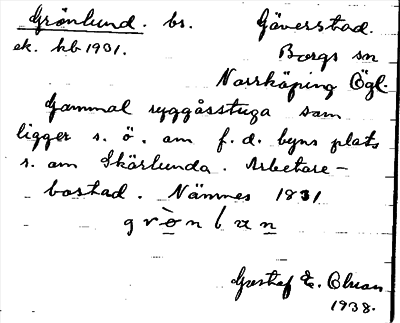 Grönlund. bs. Göverstad.
ek. hb 1901. Borgs sn
Norrköping Ögl.
Gammal ryggåsstuga som
ligger s. ö. om f. d. byns plats
s. om Skörlunda. Arbetare-
bostad. Nämnes 1831
grònlun
Gustaf E.
1938.